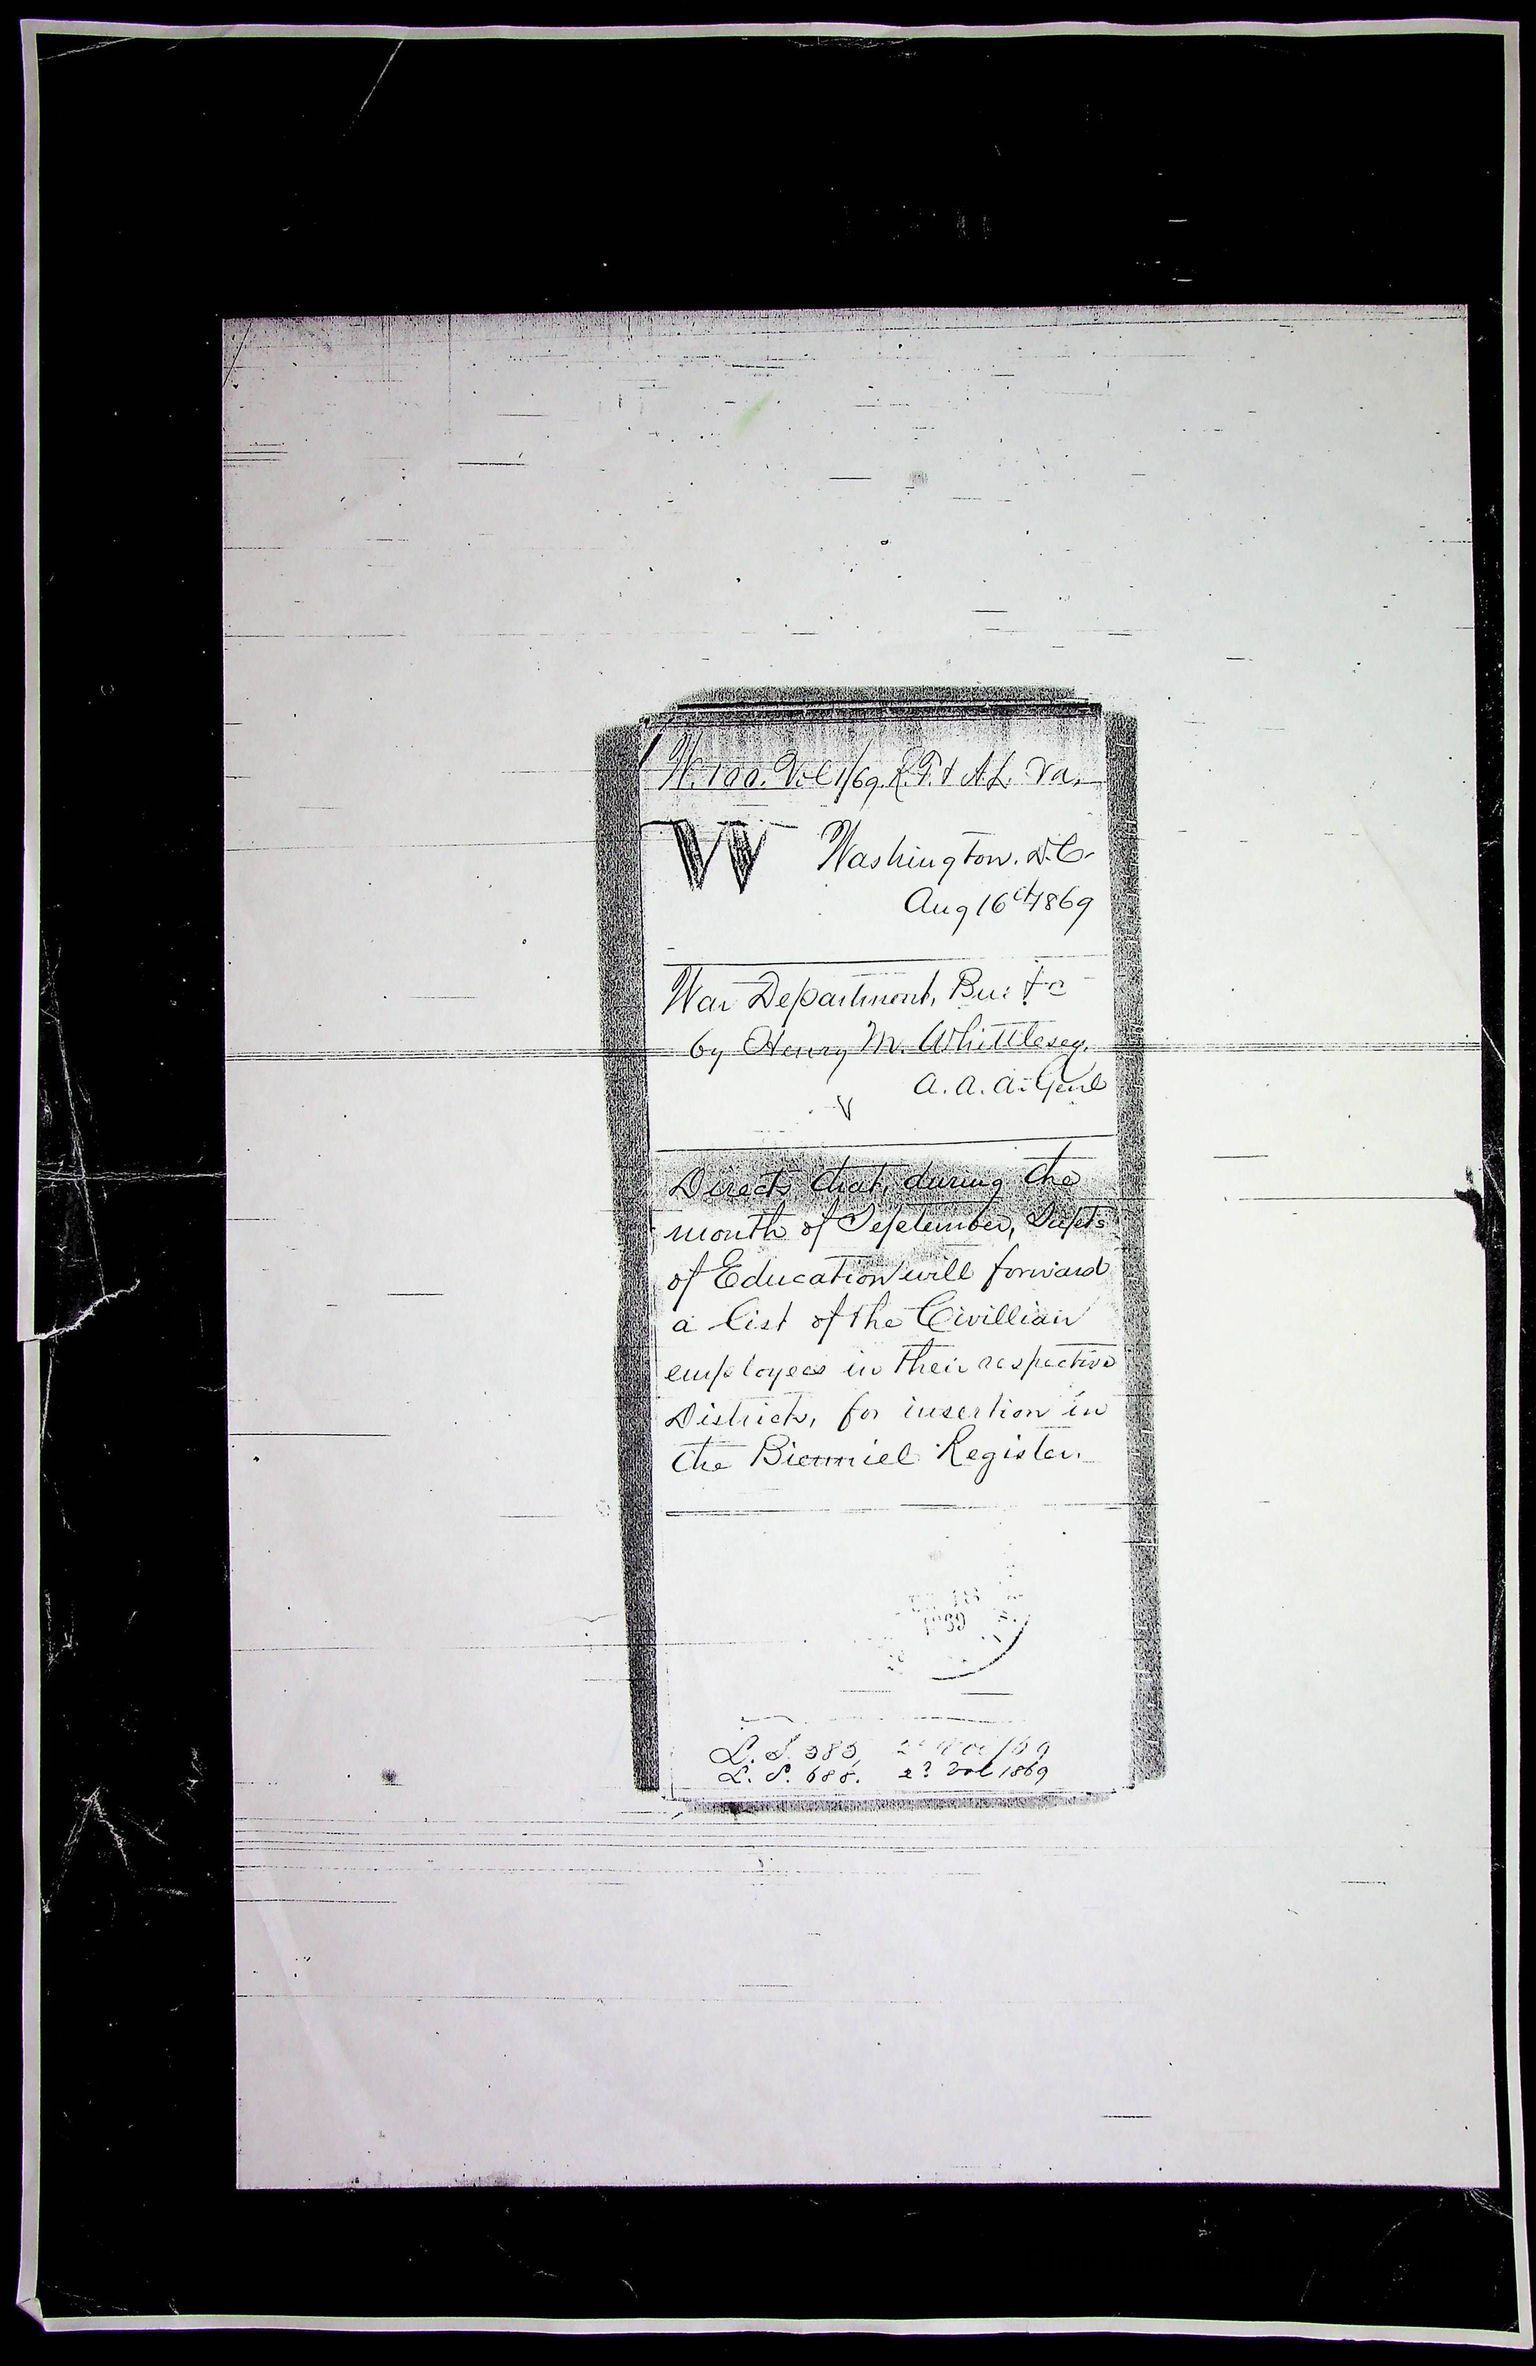 W. 100. Vol 1/69. R. F. & A. L. Va.
W Washington. D.C.
Aug 16th 1869
War Department, Bu: &c
by Henry M. Whittlesey,
A. A. A. Genl
Directs that, during the
month of September, Supts
of Education will forward
a list of the Civillian
employees in their respective
Districts, for insertion in
the Bienniel Register.
L. S. 383,
L. S. 688. 2d Vol 1869